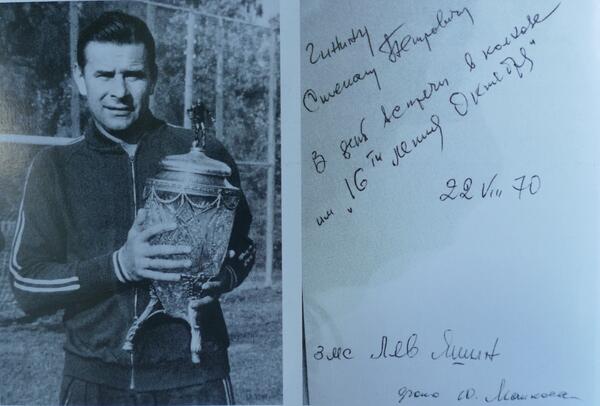 Гинину
Степану Петровичу
В день встречи в колхозе
им „16 ти летия Октября"
22 VIII 70
змс Лев Яшин
фото Ю. Мошкова